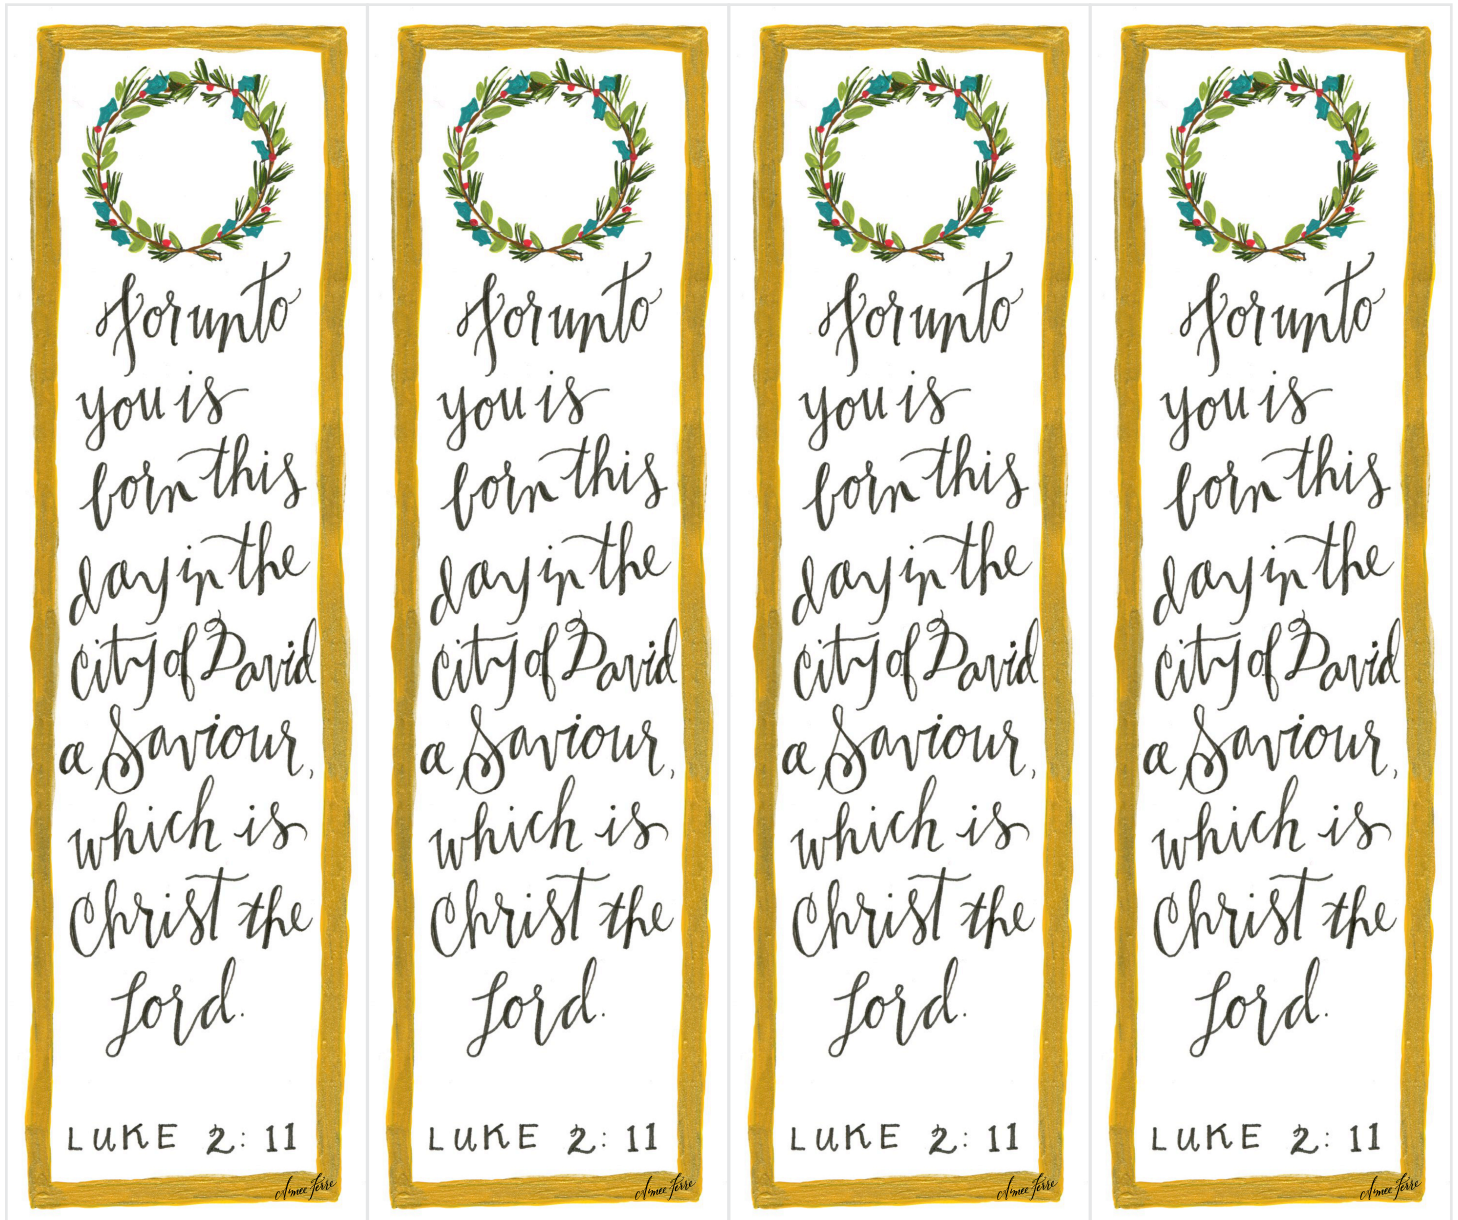 For unto
you is
born this
day in the
city of David
a Saviour,
which is
Christ the
Lord.
LUKE 2:11
Aimee Ferre
For unto
you is
born this
day in the
city of David
a Saviour,
which is
Christ the
Lord.
LUKE 2:11
Aimee Ferre
For unto
you is
born this
day in the
city of David
a Saviour,
which is
Christ the
Lord.
LUKE 2:11
Aimee Ferre
For unto
you is
born this
day in the
city of David
a Saviour,
which is
Christ the
Lord.
LUKE 2:11
Aimee Ferre